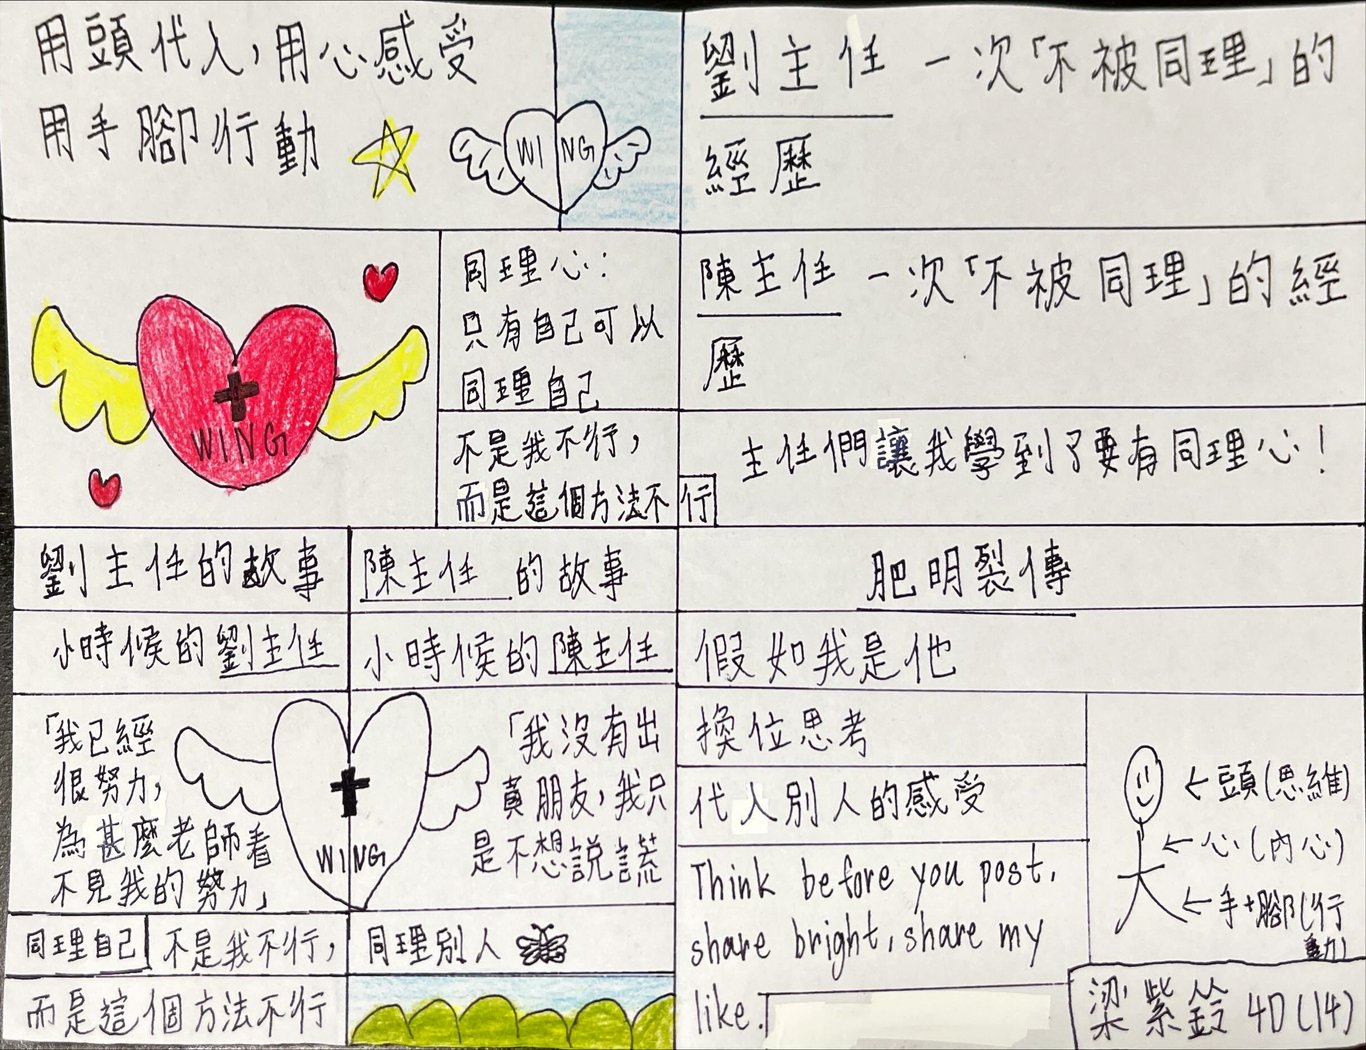 用頭代入，用心感受
用手腳行動
WING
劉主任一次「不被同理」的
經歷
WING
同理心：
只有自己可以
同理自己
不是我不行，
而是這個方法不行
陳主任一次「不被同理」的經
歷
主任們讓我學到了要有同理心！
劉主任的故事
陳主任的故事
小時候的劉主任
小時候的陳主任
「我已經
很努力，
為甚麼老師看
不見我的努力」
WING
「我沒有出
賣朋友，我只
是不想説謊
同理自己
不是我不行，
而是這個方法不行
同理別人
肥明裂傳
假如我是他
換位思考
代入別人的感受
Think before you post,
share bright, share my
like.
←頭(思維)
←心(內心)
←手+腳(行
動)
梁紫鈴 4D(14)